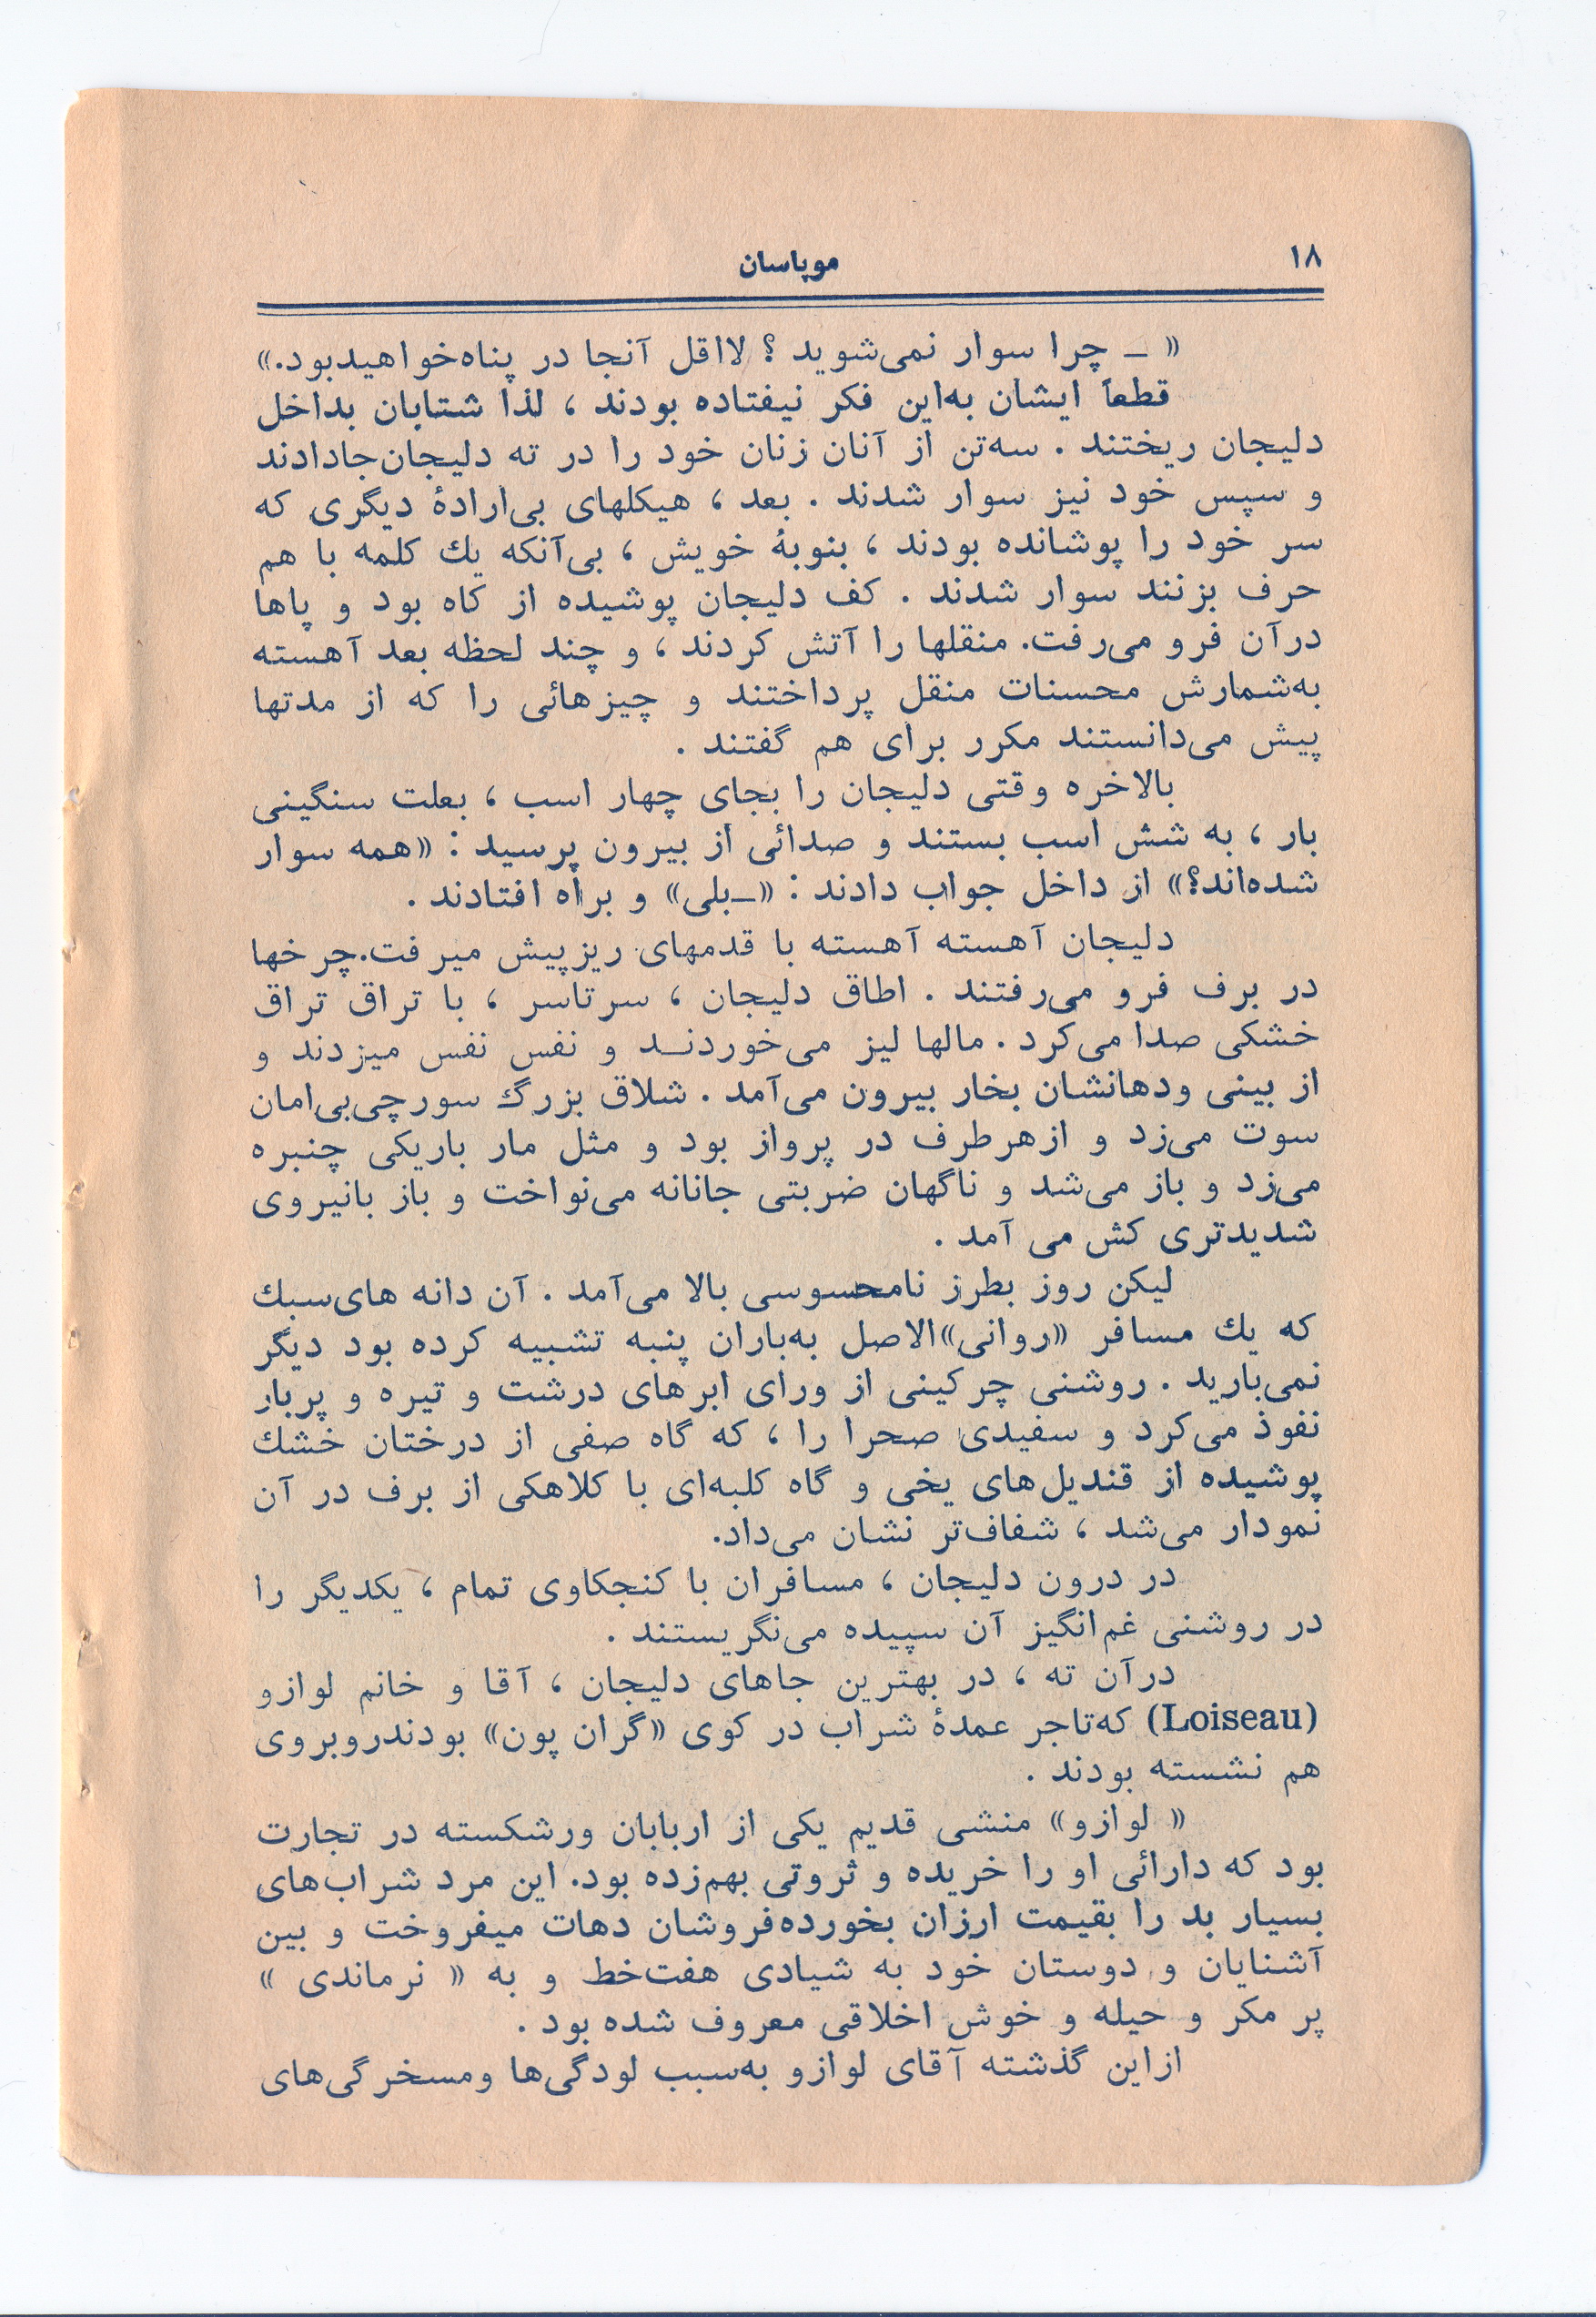 ۱۸
موپاسان
« ــ چرا سوار نمی‌شوید ؟ لااقل آنجا در پناه‌خواهیدبود.»
قطعاً ایشان به‌این فکر نیفتاده بودند ، لذا شتابان بداخل
دلیجان ریختند . سه‌تن از آنان زنان خود را در ته دلیجان‌جادادند
و سپس خود نیز سوار شدند . بعد ، هیکلهای بی‌ارادهٔ دیگری که
سر خود را پوشانده بودند ، بنوبهٔ خویش ، بی‌آنکه یك کلمه با هم
حرف بزنند سوار شدند . کف دلیجان پوشیده از کاه بود و پاها
درآن فرو می‌رفت. منقلها را آتش کردند ، و چند لحظه بعد آهسته
به‌شمارش محسنات منقل پرداختند و چیزهائی را که از مدتها
پیش می‌دانستند مکرر برای هم گفتند .
بالاخره وقتی دلیجان را بجای چهار اسب ، بعلت سنگینی
بار ، به شش اسب بستند و صدائی از بیرون پرسید : «همه سوار
شده‌اند؟» از داخل جواب دادند : «ــبلی» و براه افتادند .
دلیجان آهسته آهسته با قدمهای ریزپیش میرفت.چرخها
در برف فرو می‌رفتند . اطاق دلیجان ، سرتاسر ، با تراق تراق
خشکی صدا می‌کرد . مالها لیز می‌خوردنــد و نفس نفس میزدند و
از بینی ودهانشان بخار بیرون می‌آمد . شلاق بزرگ سورچی‌بی‌امان
سوت می‌زد و ازهرطرف در پرواز بود و مثل مار باریکی چنبره
می‌زد و باز می‌شد و ناگهان ضربتی جانانه می‌نواخت و باز بانیروی
شدیدتری کش می آمد .
لیکن روز بطرز نامحسوسی بالا می‌آمد . آن دانه های‌سبك
که یك مسافر «روانی»الاصل به‌باران پنبه تشبیه کرده بود دیگر
نمی‌بارید . روشنی چرکینی از ورای ابرهای درشت و تیره و پربار
نفوذ می‌کرد و سفیدی صحرا را ، که گاه صفی از درختان خشك
پوشیده از قندیل‌های یخی و گاه کلبه‌ای با کلاهکی از برف در آن
نمودار می‌شد ، شفاف‌تر نشان می‌داد.
در درون دلیجان ، مسافران با کنجکاوی تمام ، یکدیگر را
در روشنی غم‌انگیز آن سپیده می‌نگریستند .
درآن ته ، در بهترین جاهای دلیجان ، آقا و خانم لوازو
(Loiseau) که‌تاجر عمدهٔ شراب در کوی «گران پون» بودندروبروی
هم نشسته بودند .
« لوازو» منشی قدیم یکی از اربابان ورشکسته در تجارت
بود که دارائی او را خریده و ثروتی بهم‌زده بود. این مرد شراب‌های
بسیار بد را بقیمت ارزان بخورده‌فروشان دهات میفروخت و بین
آشنایان و دوستان خود به شیادی هفت‌خط و به « نرماندی »
پر مکر و حیله و خوش اخلاقی معروف شده بود .
ازاین گذشته آقای لوازو به‌سبب لودگی‌ها ومسخرگی‌های